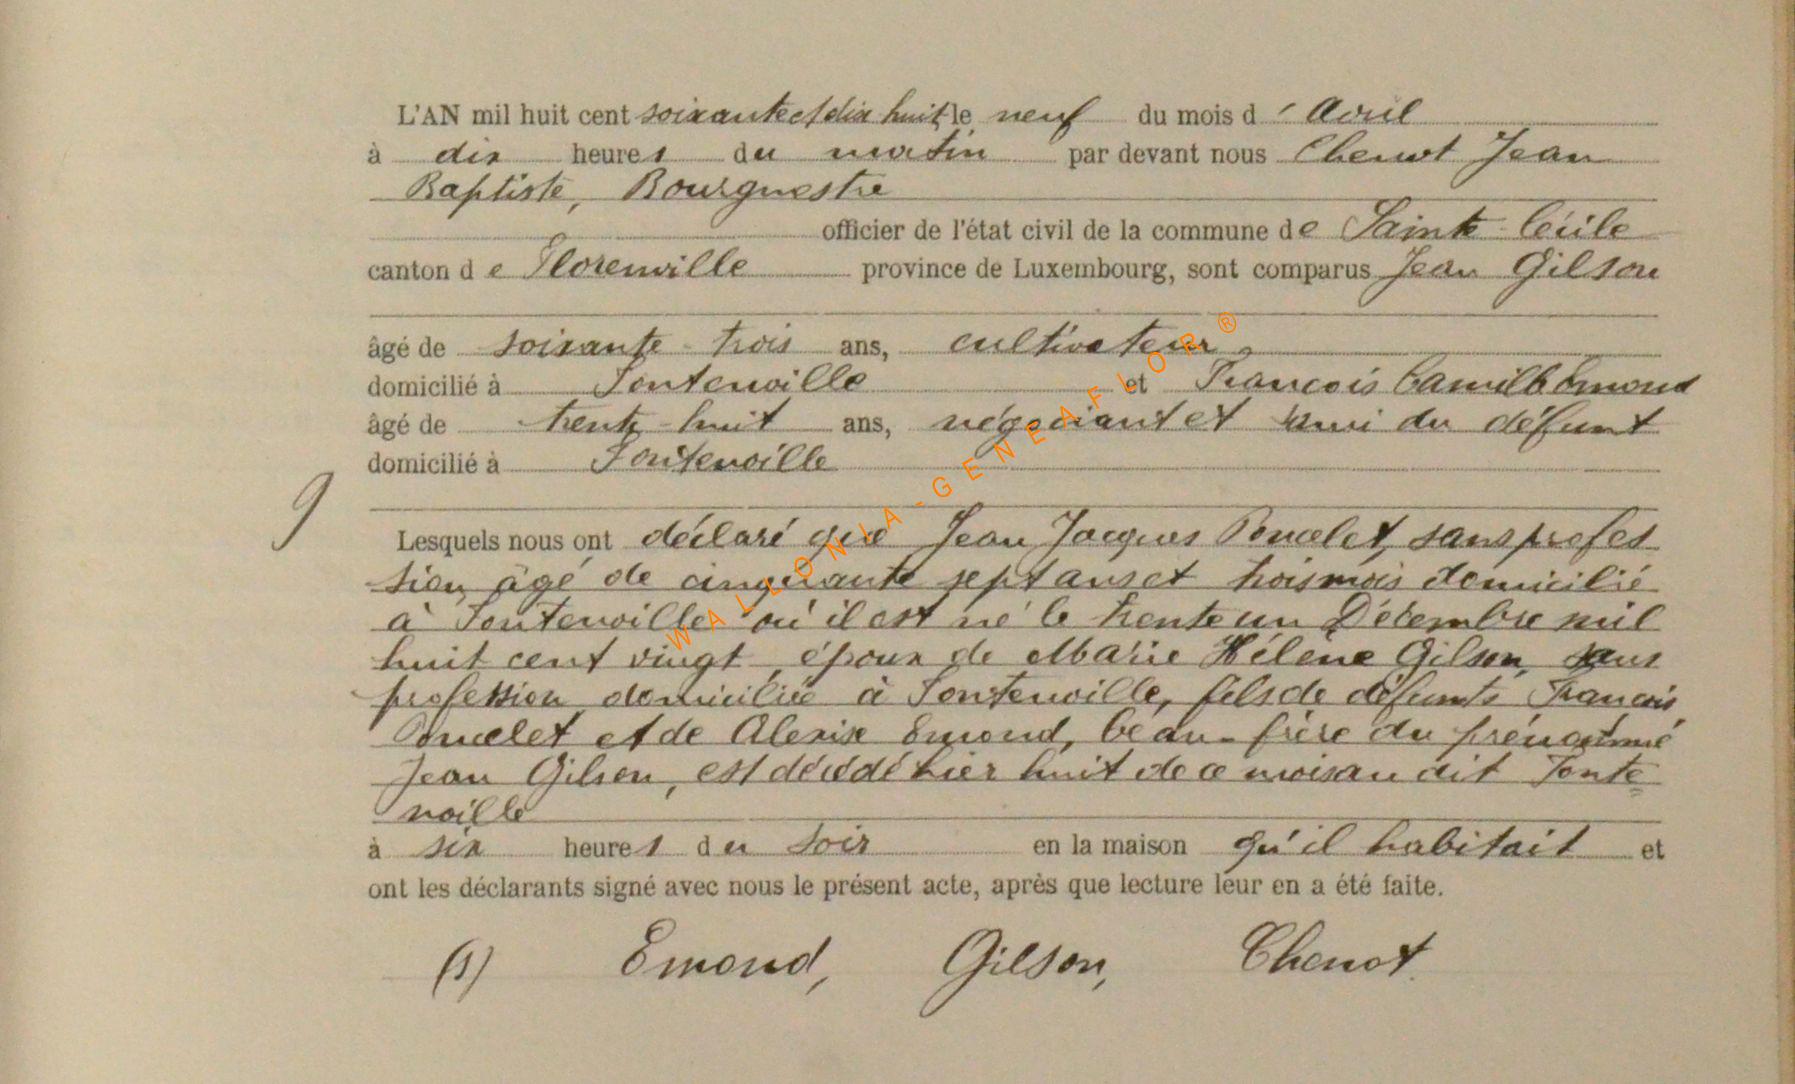 L'AN mil huit cent soixante et dix huit, le neuf du mois d'Avril
à dix heures du matin par devant nous Chenot Jean
Baptiste, Bourgmestre
officier de l'état civil de la commune de Sainte Cécile
canton de Florenville province de Luxembourg, sont comparus Jean Gilson
âgé de soixante-trois ans, cultivateur,
domicilié à Fontenoille et François Camille Emond
âgé de trente-huit ans, négociant et ami du défunt
domicilié à Fontenoille
9
Lesquels nous ont déclaré que Jean Jacques Poncelet, sans profes
sion, âgé de cinquante sept ans et trois mois domicilié
à Fontenoille où il est né le trente un Décembre mil
huit cent vingt, époux de Marie Hélène Gilson, sans
profession domiciliée à Fontenoille, fils de défunts François
Poncelet et de Alexise Emond, beau-frère du prénommé
Jean Gilson, est décédé hier huit de ce mois au dit Fonte=
noille
à six heures du soir en la maison qu'il habitait et
ont les déclarants signé avec nous le présent acte, après que lecture leur en a été faite.
(s) Emond, Gilson, Chenot.
WALLONIA-GENEAFLOR®